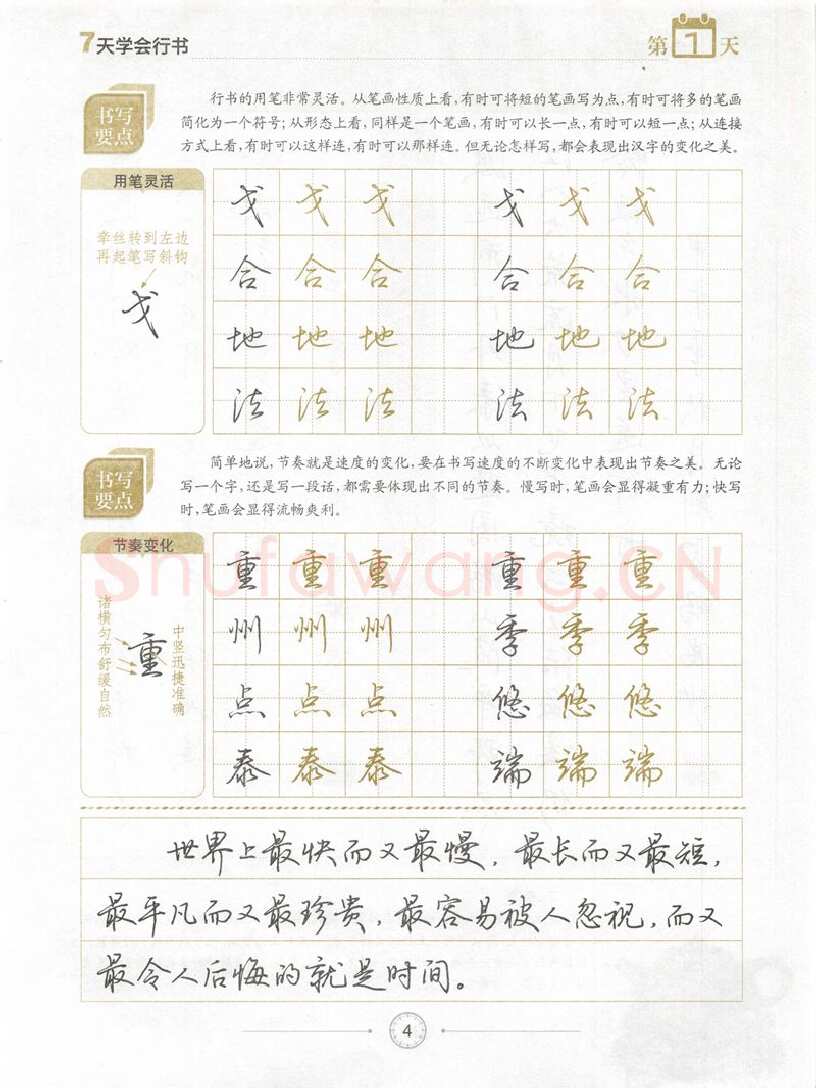 7天学会行书
第1天
书写要点
行书的用笔非常灵活。从笔画性质上看,有时可将短的笔画写为点,有时可将多的笔画
简化为一个符号;从形态上看,同样是一个笔画,有时可以长一点,有时可以短一点;从连接
方式上看,有时可以这样连,有时可以那样连。但无论怎样写,都会表现出汉字的变化之美。
用笔灵活
牵丝转到左边
再起笔写斜钩
戈
戈戈戈 戈戈戈
合合合 合合合
地地地 地地地
法法法 法法法
书写要点
简单地说,节奏就是速度的变化,要在书写速度的不断变化中表现出节奏之美。无论
写一个字,还是写一段话,都需要体现出不同的节奏。慢写时,笔画会显得凝重有力;快写
时,笔画会显得流畅爽利。
节奏变化
诸横匀布舒缓自然
重
中竖迅捷准确
重重重 重重重
州州州 季季季
点点点 悠悠悠
泰泰泰 端端端
Shufawang.CN
世界上最快而又最慢,最长而又最短,
最平凡而又最珍贵,最容易被人忽视,而又
最令人后悔的就是时间。
4